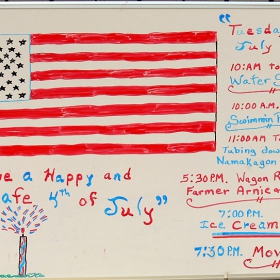 "Tuesda
July
10:AM to
Water S
10:00 A.M.
Swimmin
11:00AM T
Tubing down
Namakagon
5:30 P.M. Wagon R
Farmer Arnie a
7:00 P.M.
Ice Cream
7:30 P.M. Mo
e a Happy and
afe 4th of July"